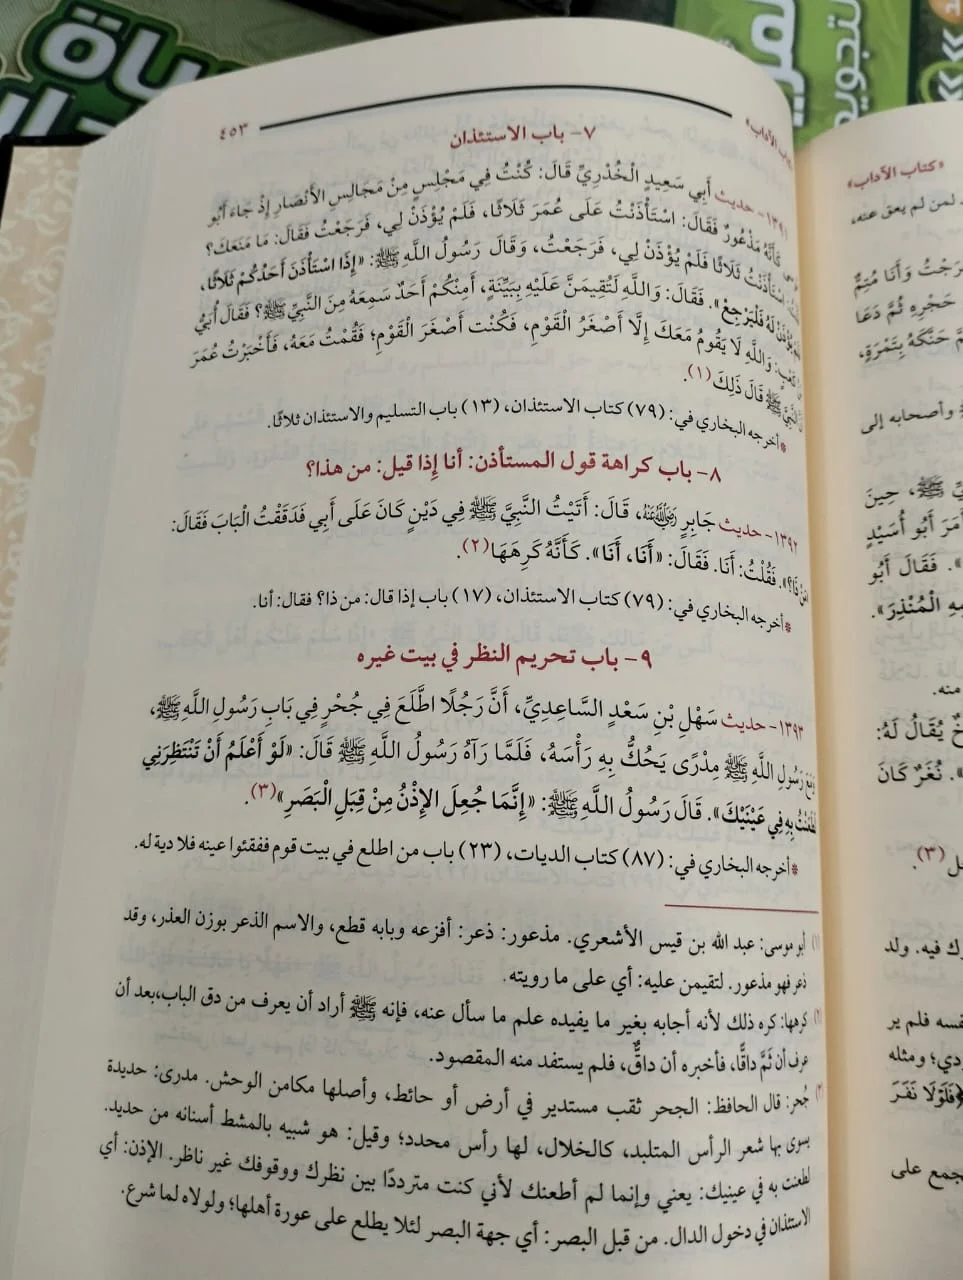 «كتاب الآداب»
٤٥٣
٧- باب الاستئذان
١٣٩١- حديث أَبِي سَعِيدٍ الْخُدْرِيِّ قَالَ: كُنْتُ فِي مَجْلِسٍ مِنْ مَجَالِسِ الأَنْصَارِ إِذْ جَاءَ أَبُو
كَأَنَّهُ مَذْعُورٌ فَقَالَ: اسْتَأْذَنْتُ عَلَى عُمَرَ ثَلَاثًا، فَلَمْ يُؤْذَنْ لِي، فَرَجَعْتُ فَقَالَ: مَا مَنَعَكَ؟
اسْتَأْذَنْتُ ثَلَاثًا فَلَمْ يُؤْذَنْ لِي، فَرَجَعْتُ، وَقَالَ رَسُولُ اللَّهِ ﷺ: «إِذَا اسْتَأْذَنَ أَحَدُكُمْ ثَلَاثًا،
يُؤْذَنْ لَهُ فَلْيَرْجِعْ». فَقَالَ: وَاللَّهِ لَتُقِيمَنَّ عَلَيْهِ بِبَيِّنَةٍ، أَمِنْكُمْ أَحَدٌ سَمِعَهُ مِنَ النَّبِيِّ ﷺ؟ فَقَالَ أُبَيُّ
وَاللَّهِ لَا يَقُومُ مَعَكَ إِلَّا أَصْغَرُ الْقَوْمِ، فَكُنْت أَصْغَرَ الْقَوْمِ؛ فَقُمْتُ مَعَهُ، فَأَخْبَرْتُ عُمَرَ
النَّبِيَّ ﷺ قَالَ ذَلِكَ (١).
* أخرجه البخاري في: (٧٩) كتاب الاستئذان، (١٣) باب التسليم والاستئذان ثلاثًا.
٨- باب كراهة قول المستأذن: أنا إِذا قيل: من هذا؟
١٣٩٢- حديث جَابِرٍ رَضِيَ اللَّهُ عَنْهُ، قَالَ: أَتَيْتُ النَّبِيَّ ﷺ فِي دَيْنٍ كَانَ عَلَى أَبِي فَدَقَقْتُ الْبَابَ فَقَالَ:
ذَا؟». فَقُلْتُ: أَنَا. فَقَالَ: «أَنَا، أَنَا». كَأَنَّهُ كَرِهَهَا (٢).
* أخرجه البخاري في: (٧٩) كتاب الاستئذان، (١٧) باب إذا قال: من ذا؟ فقال: أنا.
٩- باب تحريم النظر في بيت غيره
١٣٩٣- حديث سَهْلِ بْنِ سَعْدٍ السَّاعِدِيِّ، أَنَّ رَجُلًا اطَّلَعَ فِي جُحْرٍ فِي بَابِ رَسُولِ اللَّهِ ﷺ،
رَسُولِ اللَّهِ ﷺ مِدْرًى يَحُكُّ بِهِ رَأْسَهُ، فَلَمَّا رَآهُ رَسُولُ اللَّهِ ﷺ قَالَ: «لَوْ أَعْلَمُ أَنْ تَنْتَظِرَنِي
بِهِ فِي عَيْنَيْكَ». قَالَ رَسُولُ اللَّهِ ﷺ: «إِنَّمَا جُعِلَ الإِذْنُ مِنْ قِبَلِ الْبَصَرِ» (٣).
* أخرجه البخاري في: (٨٧) كتاب الديات، (٢٣) باب من اطلع في بيت قوم ففقئوا عينه فلا دية له.
(١) أبو موسى: عبد الله بن قيس الأشعري. مذعور: ذعر: أفزعه وبابه قطع، والاسم الذعر بوزن العذر، وقد
ذعر فهو مذعور. لتقيمن عليه: أي على ما رويته.
(٢) كرهها: كره ذلك لأنه أجابه بغير ما يفيده علم ما سأل عنه، فإنه ﷺ أراد أن يعرف من دق الباب،بعد أن
عرف أن ثَمَّ داقًّا، فأخبره أن داقٌّ، فلم يستفد منه المقصود.
(٣) جُحر: قال الحافظ: الجحر ثقب مستدير في أرض أو حائط، وأصلها مكامن الوحش. مدرى: حديدة
يسوى بها شعر الرأس المتلبد، كالخلال، لها رأس محدد؛ وقيل: هو شبيه بالمشط أسنانه من حديد.
لطعنت به في عينيك: يعني وإنما لم أطعنك لأني كنت مترددًا بين نظرك ووقوفك غير ناظر. الإذن: أي
الاستئذان في دخول الدال. من قبل البصر: أي جهة البصر لئلا يطلع على عورة أهلها؛ ولولاه لما شرع.
«كتاب الآداب»
لمن لم يعق عنه،
رَجْتُ وَأَنَا مُتِمٌّ
حَجْرِهِ ثُمَّ دَعَا
حَنَّكَهُ بِتَمْرَةٍ،
وأصحابه إلى
ﷺ، حِينَ
أَبُو أُسَيْدٍ
». فَقَالَ أَبُو
الْمُنْذِرَ».
منه.
يُقَالُ لَهُ:
». نُغَرٌ كَانَ
(٣).
فيه. ولد
فلم ير
ومثله
﴿فَلَوْلَا نَفَرَ
على